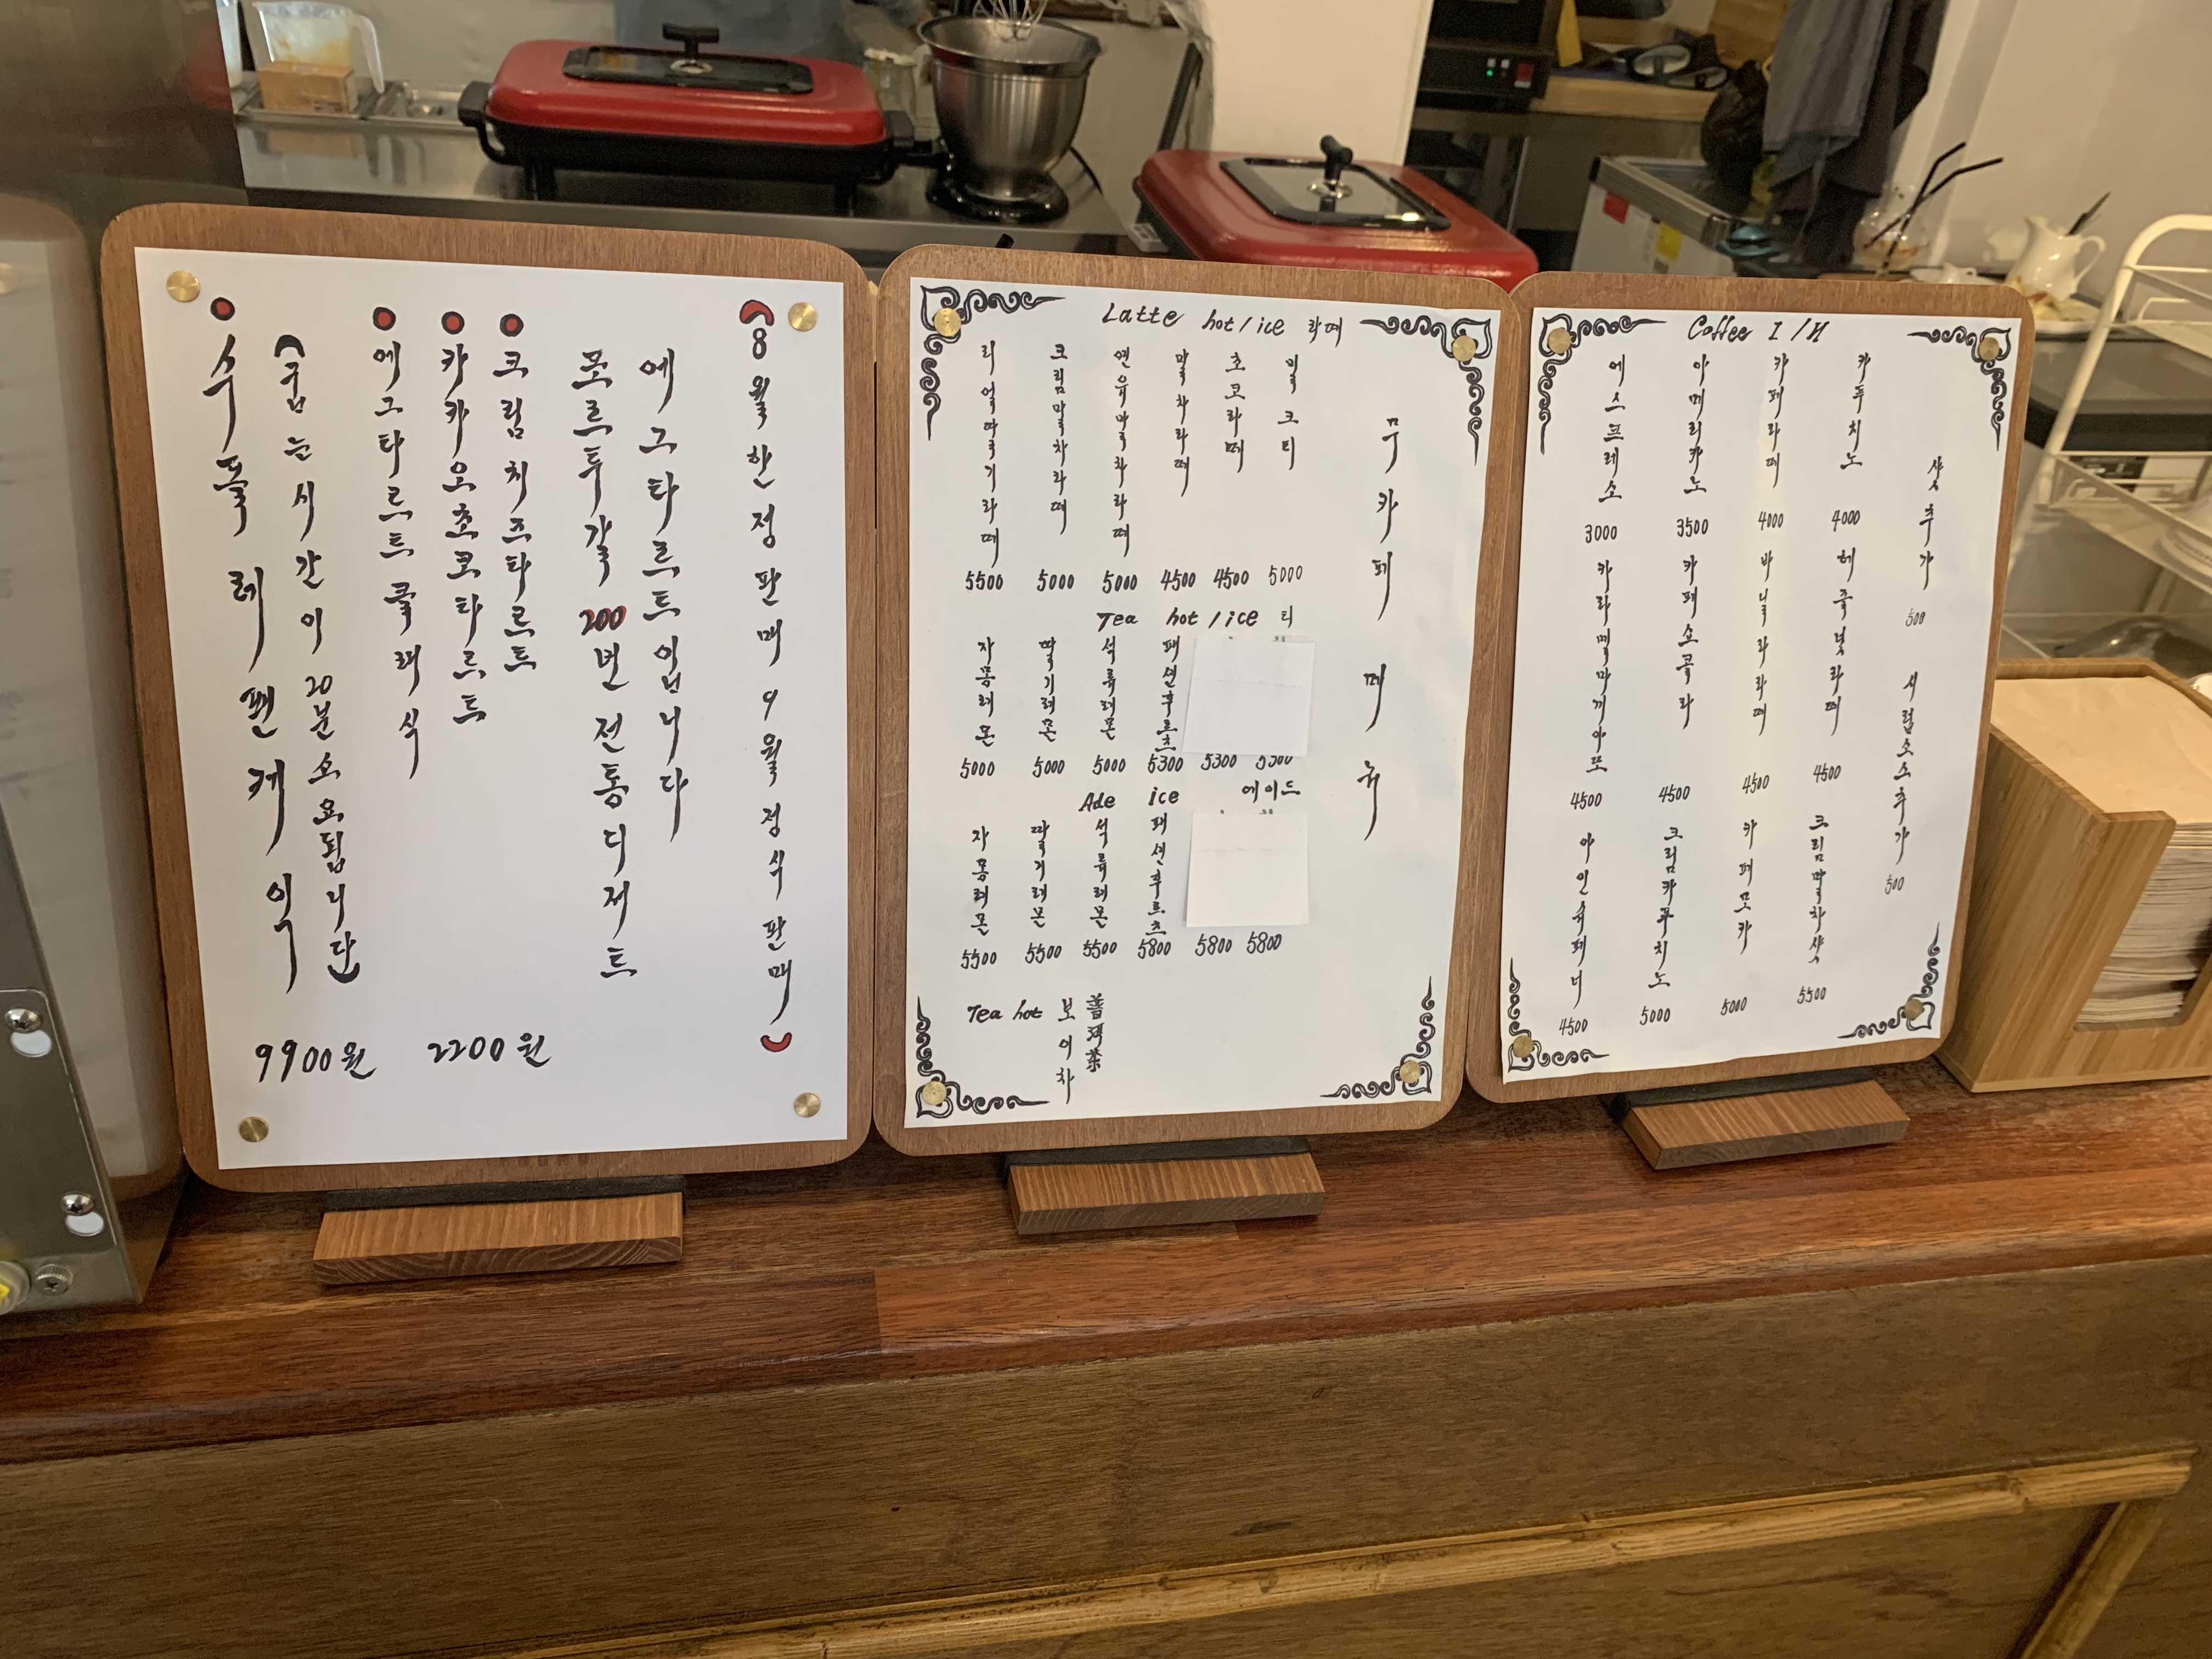 수플레 펜케익
(굽는 시간이 20분 소요됩니다)
에그타르트 클래식
카카오초코타르트
크림치즈타르트
포르투갈 200년 전통 디저트
에그타르트입니다
(8월 한정 판매 9월 정식 판매)
9900원
2200원
Latte hot/ice 라떼
리얼딸기라떼
크림말차라떼
연유말차라떼
말차라떼
초코라떼
밀크티
5500 5000 5000 4500 4500 5000
Tea hot/ice 티
자몽레몬
딸기레몬
석류레몬
패션후르츠
5000 5000 5000 5300 5300 5300
Ade ice 에이드
자몽레몬
딸기레몬
석류레몬
패션후르츠
5500 5500 5500 5800 5800 5800
Tea hot 보이차 普洱茶
뮤카페 메뉴
Coffee I/H
에스프레소
아메리카노
카페라떼
카푸치노
3000 3500 4000 4000
카라멜마끼아또
카페쇼콜라
바닐라라떼
헤즐넛라떼
4500 4500 4500 4500
아인슈페너
크림카푸치노
카페모카
크림말차샷
4500 5000 5000 5500
샷추가 500
시럽소스추가 500